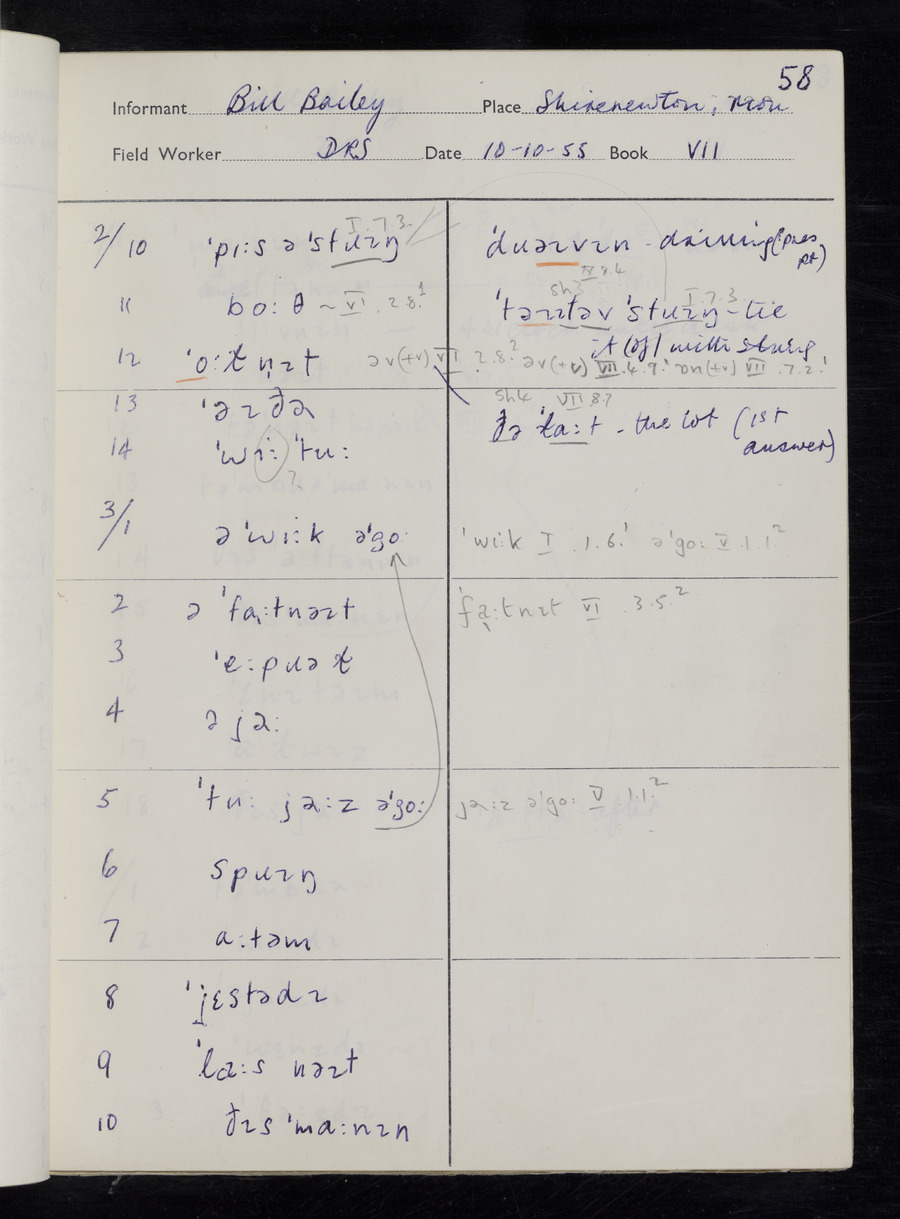 58
Informant Bill Bailey Place Shirenewton, Mon
Field Worker DRS Date 10-10-55 Book VII
2/10 ˈpɪːs ə ˈstɹɪŋ I.7.3.
11 boːθ ~ VI.2.8.¹
12 ˈoːɫ n̩ɪt əv(+v) VII.2.8.² əv(+v) VII.4.9.¹ ɒn(+v) VII.7.2.¹
13 ˈəɪðə
14 ˈwiː ˈtuː ?
3/1 ə ˈwiːk əˈgoː
2 ə ˈfaːtnəɪt
3 ˈeːpɹəɫ
4 ə jəː
5 ˈtuː jəːz əˈgoː
6 spɹɪŋ
7 aːtəm
8 ˈjɛstədɪ
9 ˈlaːs nəɪt
10 ðɪs ˈmaːnɪn
ˈdɹəɪvɪn - driving (pres pt)
IV 8.4
sh3
ˈtəɪɪtəv ˈstɹɪŋ - tie I.7.3.
it (of) with string
sh4 VII 8.7
ðə ˈlaːt - the lot (1st answer)
ˈwiːk I.1.6.¹ əˈgoː V.1.1²
ˈfaːtnɪt VI.3.5.²
jəːz əˈgoː V 1.1.²